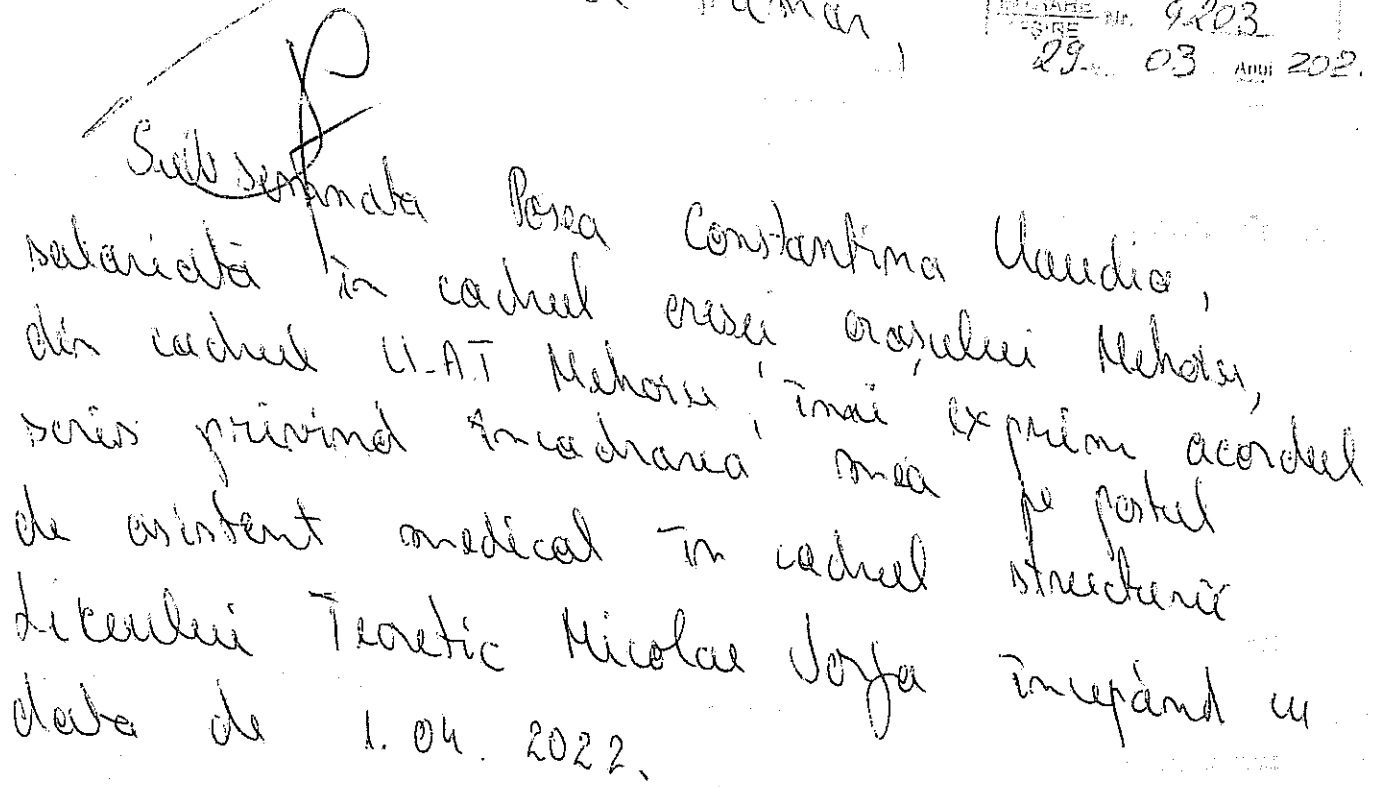 Primar,
INTRARE
IEȘIRE Nr. 9203
29. 03 Anul 202.
Subsemnata Posea Constantina Claudia,
salariată în cadrul creșei orașului Nehoiu,
din cadrul U.A.T Nehoiu, îmi exprim acordul
scris privind încadrarea mea pe postul
de asistent medical în cadrul structurii
Liceului Teoretic Nicolae Iorga începând cu
data de 1.04.2022.